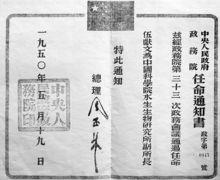 中央人民政府
政務院
任命通知書
政字第
號
茲經政務院第三十三次政務會議通過任命
伍献文為中國科學院水生生物研究所副所長
特此通知
總理
一九五〇年五月十九日
中央人民政府政務院印